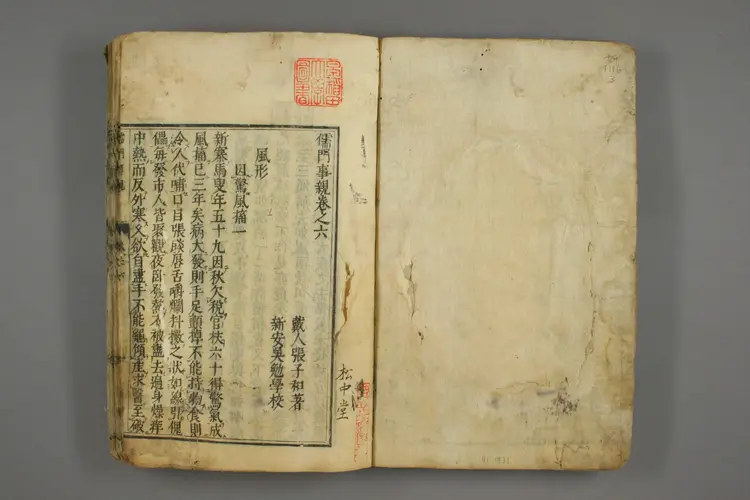 儒門事親卷之六
戴人張子和著
新安吳勉學校
風形
因驚風搐一
新寨馬叟年五十九因秋欠稅官杖六十得驚氣成
風搐已三年矣病大發則手足顫掉不能持物食則
令人代哺口目張睒唇舌嚼爛抖擻之狀如線引傀
儡每發市人皆聚觀夜卧發熱衣被盡去遍身燥痒
中熱而反外寒久欲自盡手不能繩傾產求醫至破
松中堂